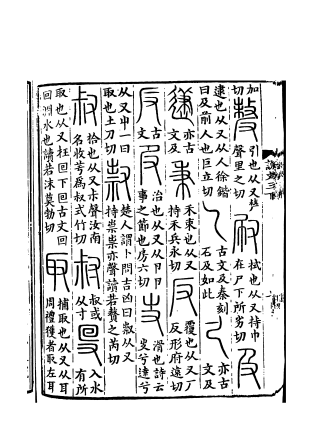 加切 𠭰 引也从又𠩺聲里之切 㕞 拭也从又持巾在尸下所劣切 及
逮也从又从人徐鍇曰及前人也巨立切 乁 古文及秦刻石及如此 亦古文及
亦古文及 秉 禾束也从又持禾兵永切 反 覆也从又厂反形府遠切
反 古文 𠬝 治也从又从卪卪事之節也房六切 𠬢 滑也詩云㞺兮達兮
从又屮一曰取也土刀切 𣀷 楚人謂卜問吉凶曰𣀷从又持祟祟亦聲讀若贅之芮切
叔 拾也从又尗聲汝南名收芌爲叔式竹切 叔或从寸 𠬸 入水有所
取也从又在囘下囘古文回回淵水也讀若沫莫勃切 取 捕取也从又从耳周禮獲者取左耳